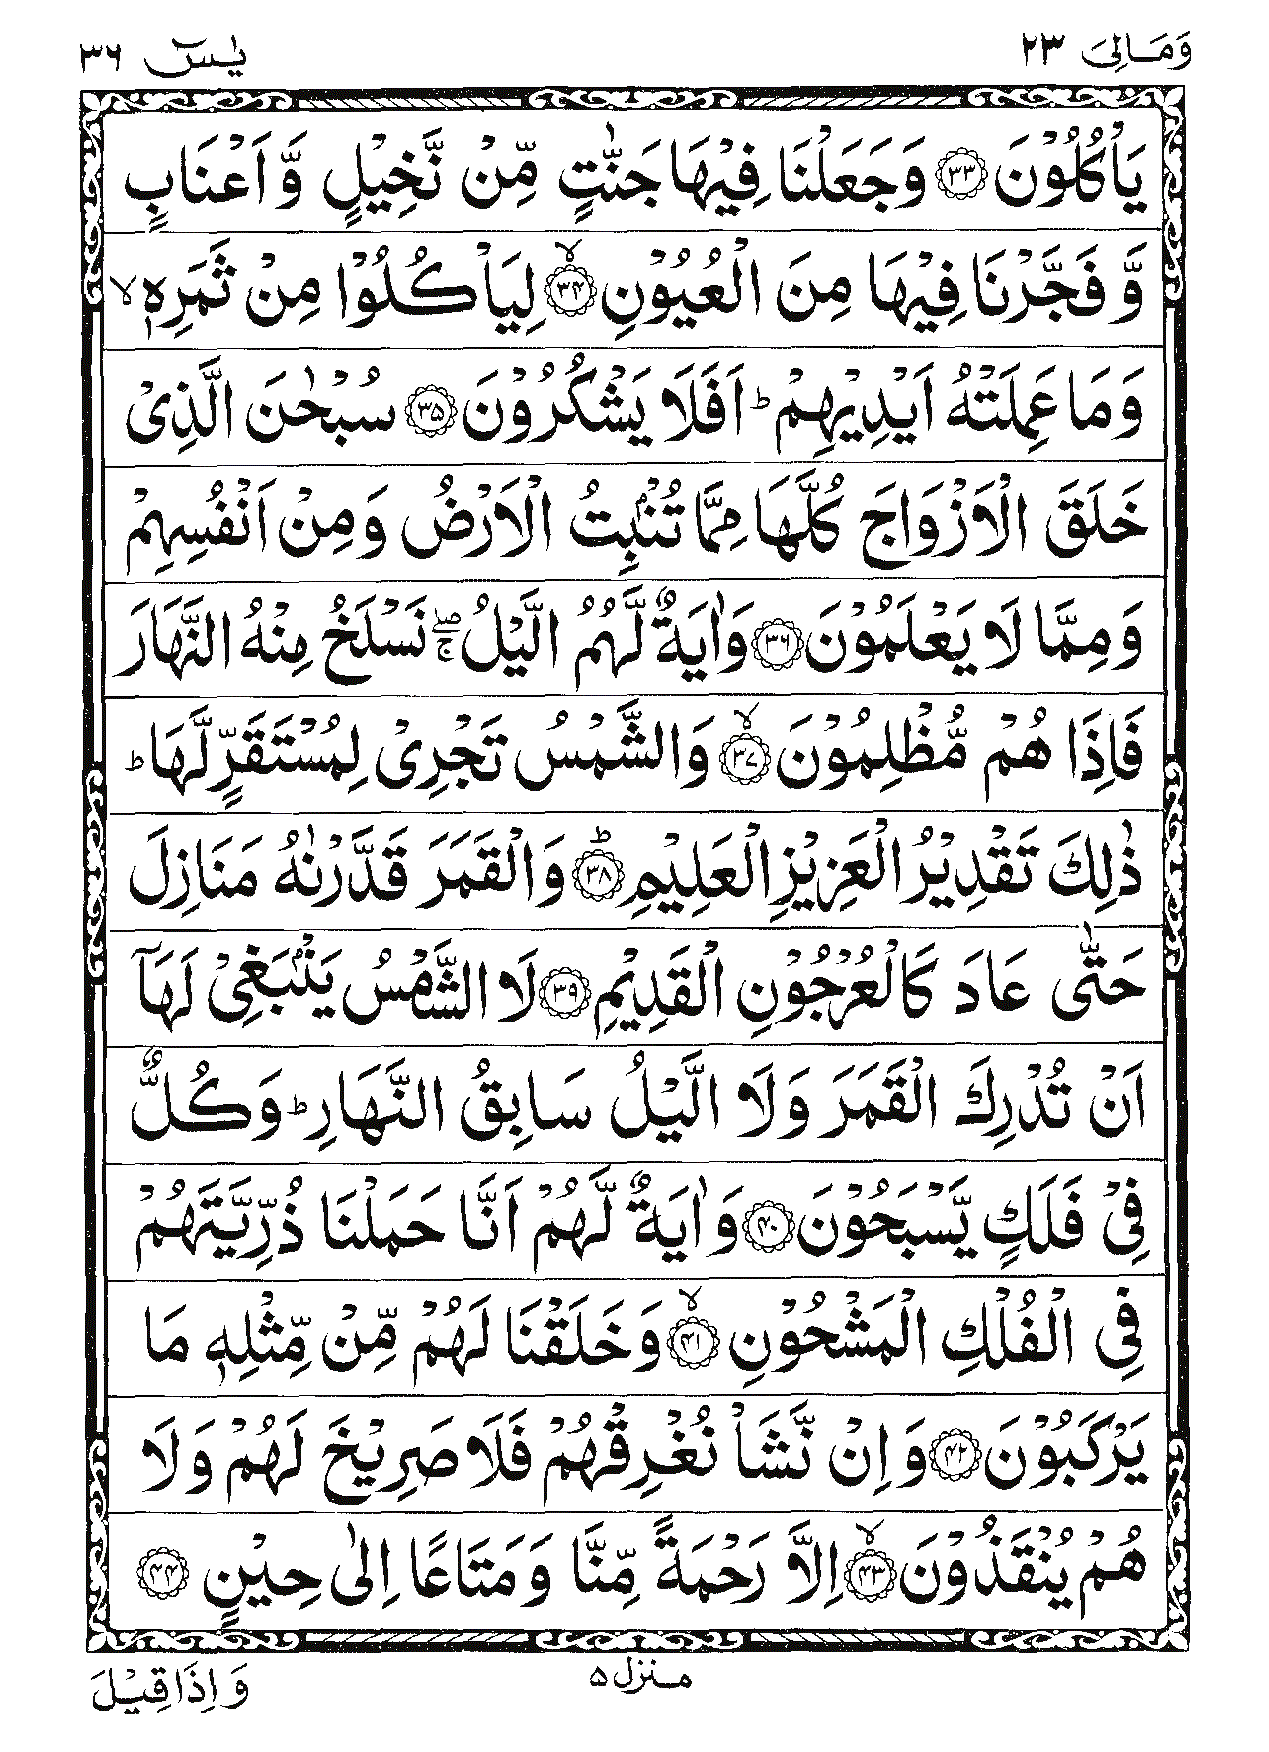 وَمَالِیَ ٢٣ یٰسٓ ٣٦
یَاْكُلُوْنَ ﴿۳۳﴾ وَجَعَلْنَا فِیْهَا جَنّٰتٍ مِّنْ نَّخِیْلٍ وَّ اَعْنَابٍ
وَّ فَجَّرْنَا فِیْهَا مِنَ الْعُیُوْنِ ﴿۳۴﴾ۙ لِیَاْكُلُوْا مِنْ ثَمَرِهٖ ۙ
وَمَا عَمِلَتْهُ اَیْدِیْهِمْ ؕ اَفَلَا یَشْكُرُوْنَ ﴿۳۵﴾ سُبْحٰنَ الَّذِیْ
خَلَقَ الْاَزْوَاجَ كُلَّهَا مِمَّا تُنْۢبِتُ الْاَرْضُ وَمِنْ اَنْفُسِهِمْ
وَمِمَّا لَا یَعْلَمُوْنَ ﴿۳۶﴾ وَاٰیَةٌ لَّهُمُ الَّیْلُ ۖۚ نَسْلَخُ مِنْهُ النَّهَارَ
فَاِذَا هُمْ مُّظْلِمُوْنَ ﴿۳۷﴾ۙ وَالشَّمْسُ تَجْرِیْ لِمُسْتَقَرٍّ لَّهَا ؕ
ذٰلِكَ تَقْدِیْرُ الْعَزِیْزِ الْعَلِیْمِ ﴿۳۸﴾ؕ وَالْقَمَرَ قَدَّرْنٰهُ مَنَازِلَ
حَتّٰی عَادَ كَالْعُرْجُوْنِ الْقَدِیْمِ ﴿۳۹﴾ لَا الشَّمْسُ یَنْۢبَغِیْ لَهَاۤ
اَنْ تُدْرِكَ الْقَمَرَ وَلَا الَّیْلُ سَابِقُ النَّهَارِ ؕ وَكُلٌّ
فِیْ فَلَكٍ یَّسْبَحُوْنَ ﴿۴۰﴾ وَ اٰیَةٌ لَّهُمْ اَنَّا حَمَلْنَا ذُرِّیَّتَهُمْ
فِی الْفُلْكِ الْمَشْحُوْنِ ﴿۴۱﴾ۙ وَخَلَقْنَا لَهُمْ مِّنْ مِّثْلِهٖ مَا
یَرْكَبُوْنَ ﴿۴۲﴾ وَ اِنْ نَّشَاْ نُغْرِقْهُمْ فَلَا صَرِیْخَ لَهُمْ وَلَا
هُمْ یُنْقَذُوْنَ ﴿۴۳﴾ۙ اِلَّا رَحْمَةً مِّنَّا وَمَتَاعًا اِلٰی حِیْنٍ ﴿۴۴﴾
منزل ۵
وَ اِذَا قِیْلَ